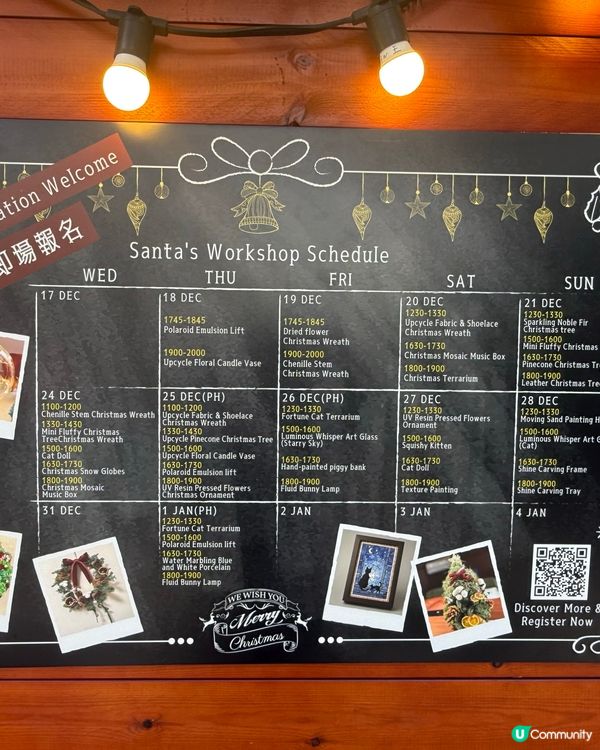 ation Welcome
即場報名
Santa's Workshop Schedule
WED THU FRI SAT SUN
17 DEC
18 DEC
1745-1845
Polaroid Emulsion Lift
1900-2000
Upcycle Floral Candle Vase
19 DEC
1745-1845
Dried flower
Christmas Wreath
1900-2000
Chenille Stem
Christmas Wreath
20 DEC
1230-1330
Upcycle Fabric & Shoelace
Christmas Wreath
1630-1730
Christmas Mosaic Music Box
1800-1900
Christmas Terrarium
21 DEC
1230-1330
Sparkling Noble Fir
Christmas tree
1500-1600
Mini Fluffy Christmas
1630-1730
Pinecone Christmas Tre
1800-1900
Leather Christmas Tre
24 DEC
1100-1200
Chenille Stem Christmas Wreath
1330-1430
Mini Fluffy Christmas
TreeChristmas Wreath
1500-1600
Cat Doll
1630-1730
Christmas Snow Globes
1800-1900
Christmas Mosaic
Music Box
25 DEC(PH)
1100-1200
Upcycle Fabric & Shoelace
Christmas Wreath
1330-1430
Upcycle Pinecone Christmas Tree
1500-1600
Upcycle Floral Candle Vase
1630-1730
Polaroid Emulsion lift
1800-1900
UV Resin Pressed Flowers
Christmas Ornament
26 DEC(PH)
1230-1330
Fortune Cat Terrarium
1500-1600
Luminous Whisper Art Glass
(Starry Sky)
1630-1730
Hand-painted piggy bank
1800-1900
Fluid Bunny Lamp
27 DEC
1230-1330
UV Resin Pressed Flowers
Ornament
1500-1600
Squishy Kitten
1630-1730
Cat Doll
1800-1900
Texture Painting
28 DEC
1230-1330
Moving Sand Painting H
1500-1600
Luminous Whisper Art G
(Cat)
1630-1730
Shine Carving Frame
1800-1900
Shine Carving Tray
31 DEC
1 JAN(PH)
1230-1330
Fortune Cat Terrarium
1500-1600
Polaroid Emulsion lift
1630-1730
Water Marbling Blue
and White Porcelain
1800-1900
Fluid Bunny Lamp
2 JAN
3 JAN
4 JAN
Discover More &
Register Now
WE WISH YOU
Merry
Christmas
U Community